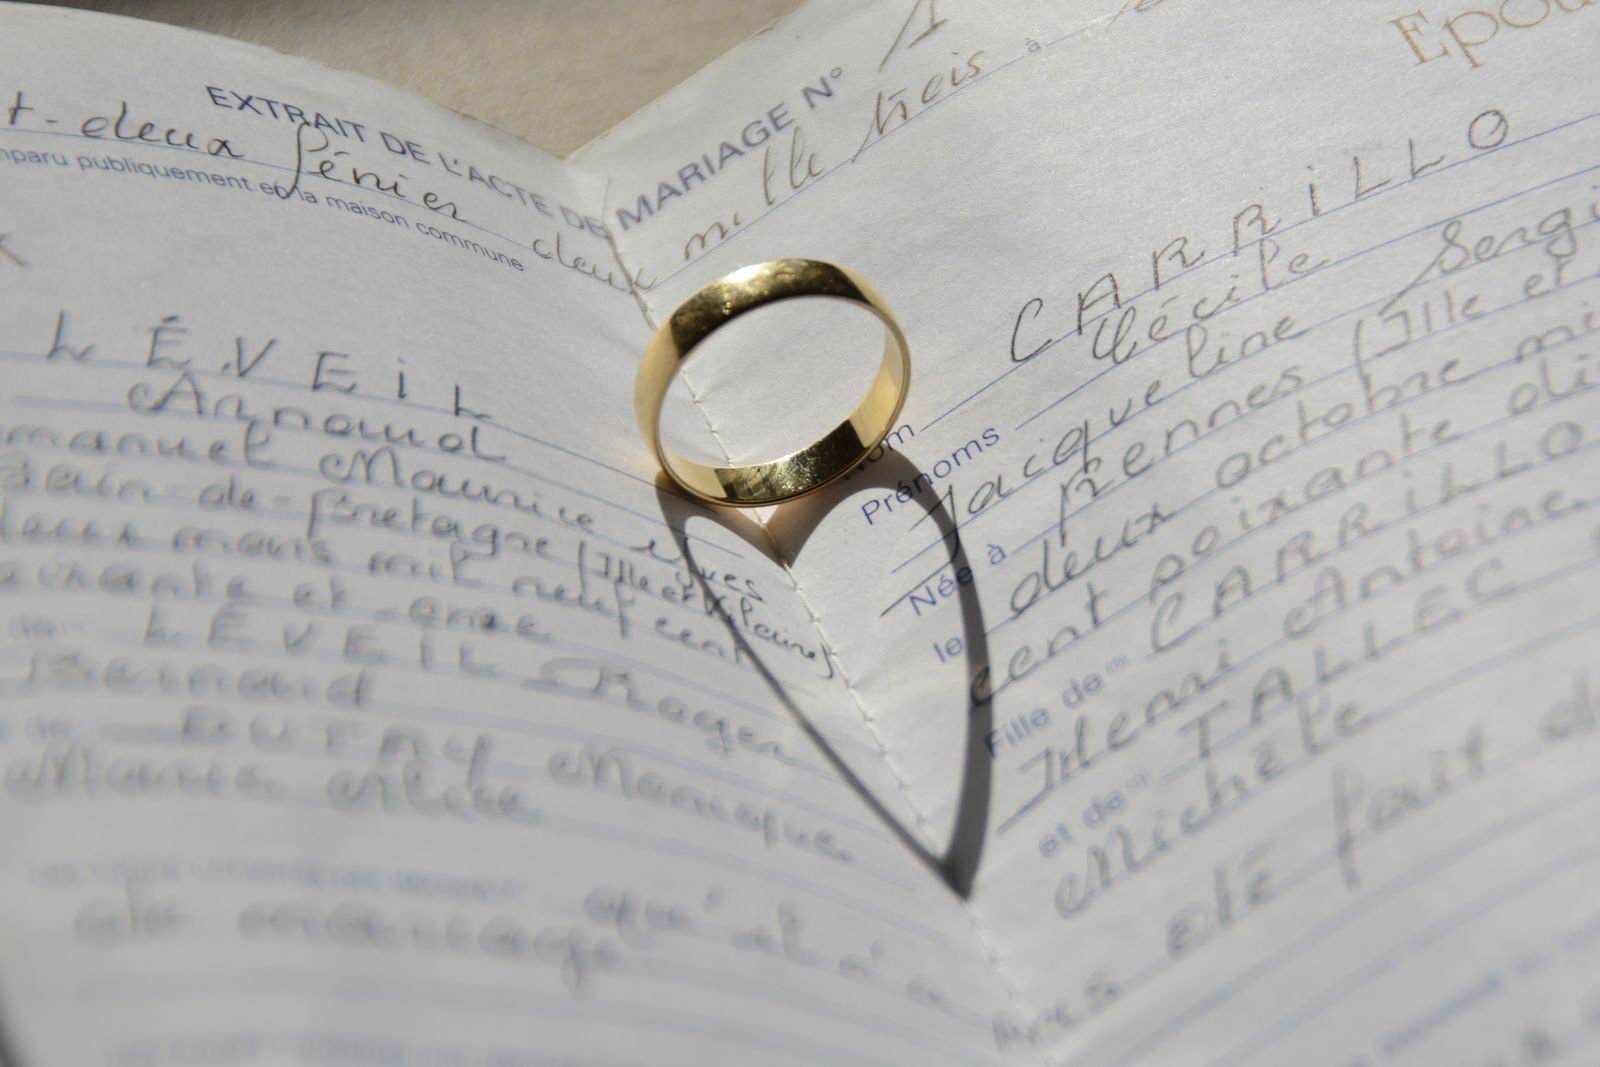 EXTRAIT DE L'ACTE DE MARIAGE N°
t-deux Février deux mille trois à
mparu publiquement en la maison commune
LÉVEIL
Arnaud
manuel Maurice Yves
-de-Bretagne (Ille et Vilaine)
deux mars mil neuf cent
et onze
LÉVEIL Roger
Bernard
Monique
Marie Alice
de mariage qu'il n'a
Epou
Nom CARRILLO
Prénoms Cécile Sergi
Jacqueline
Née à Rennes (Ille et
le deux octobre mi
cent soixante di
Fille de (1) CARRILLO
Henri Antoine
et de (1) TALLEC
Michèle
pas été fait de